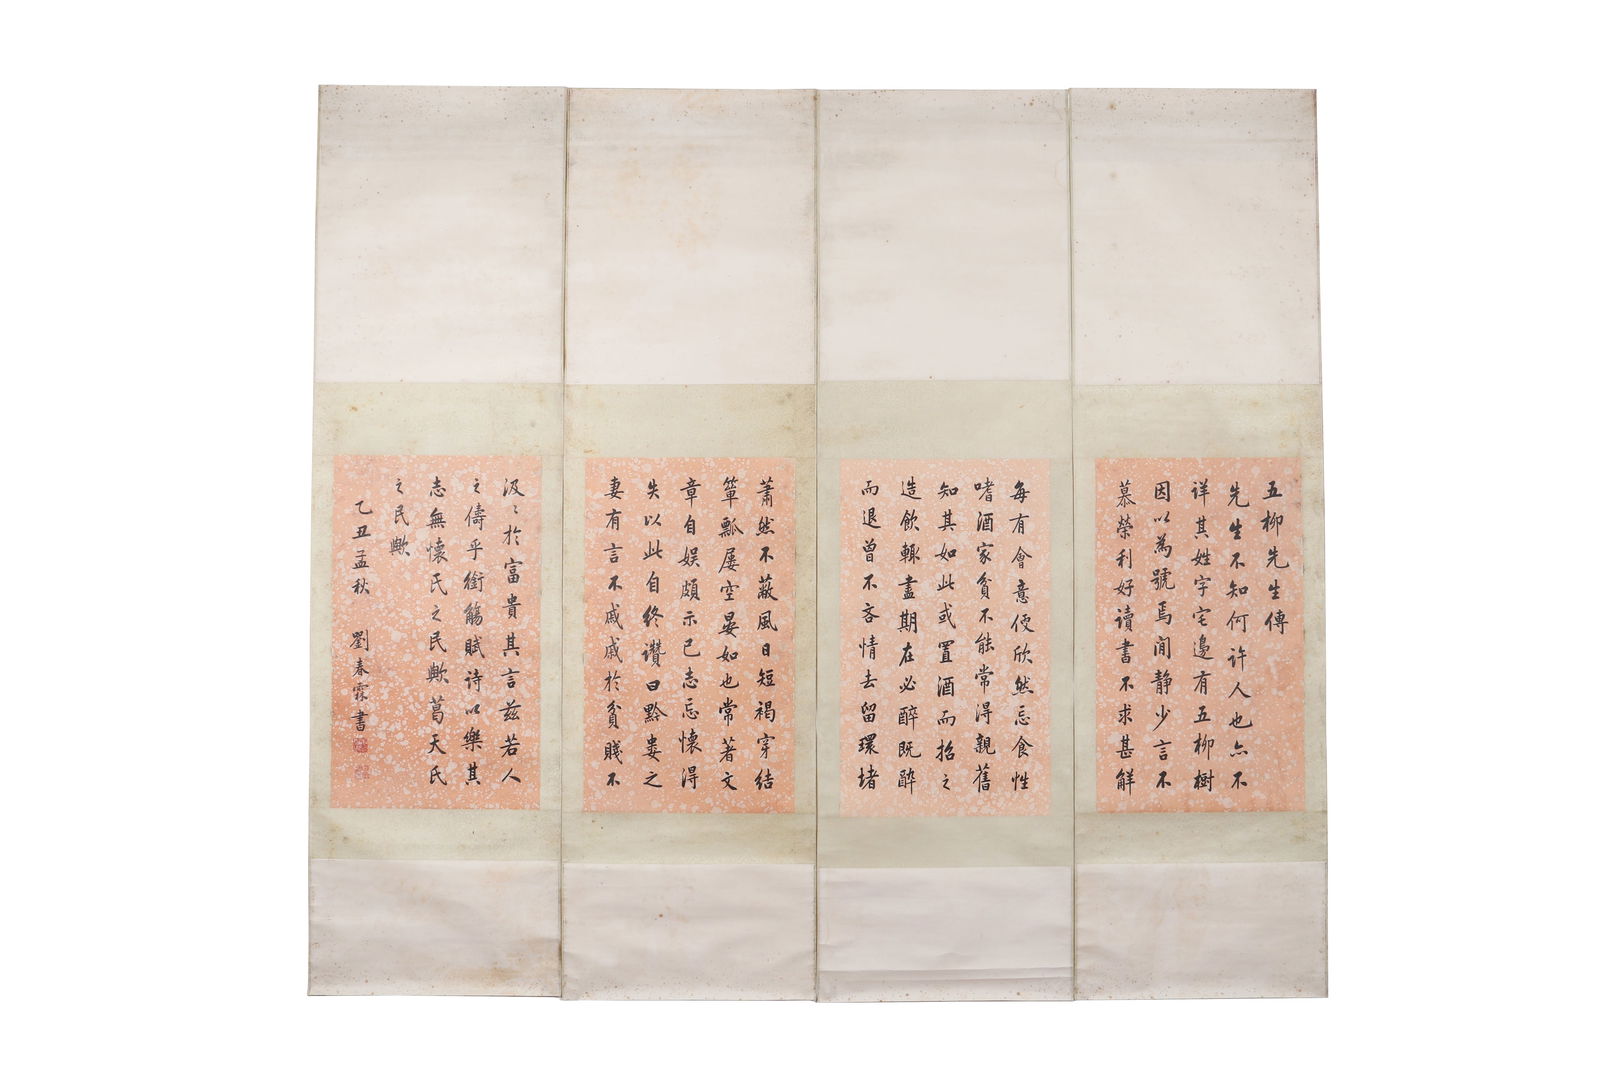 五柳先生傳
先生不知何許人也亦不
詳其姓字宅邊有五柳樹
因以為號焉閒静少言不
慕榮利好讀書不求甚解
每有會意便欣然忘食性
嗜酒家貧不能常得親舊
知其如此或置酒而招之
造飲輒盡期在必醉既醉
而退曾不吝情去留環堵
蕭然不蔽風日短褐穿結
簞瓢屢空晏如也常著文
章自娱頗示己志忘懷得
失以此自終讚曰黔婁之
妻有言不戚戚於貧賤不
汲〻於富貴其言兹若人
之儔乎銜觴賦诗以樂其
志無懷氏之民歟葛天氏
之民歟
乙丑孟秋 劉春霖書